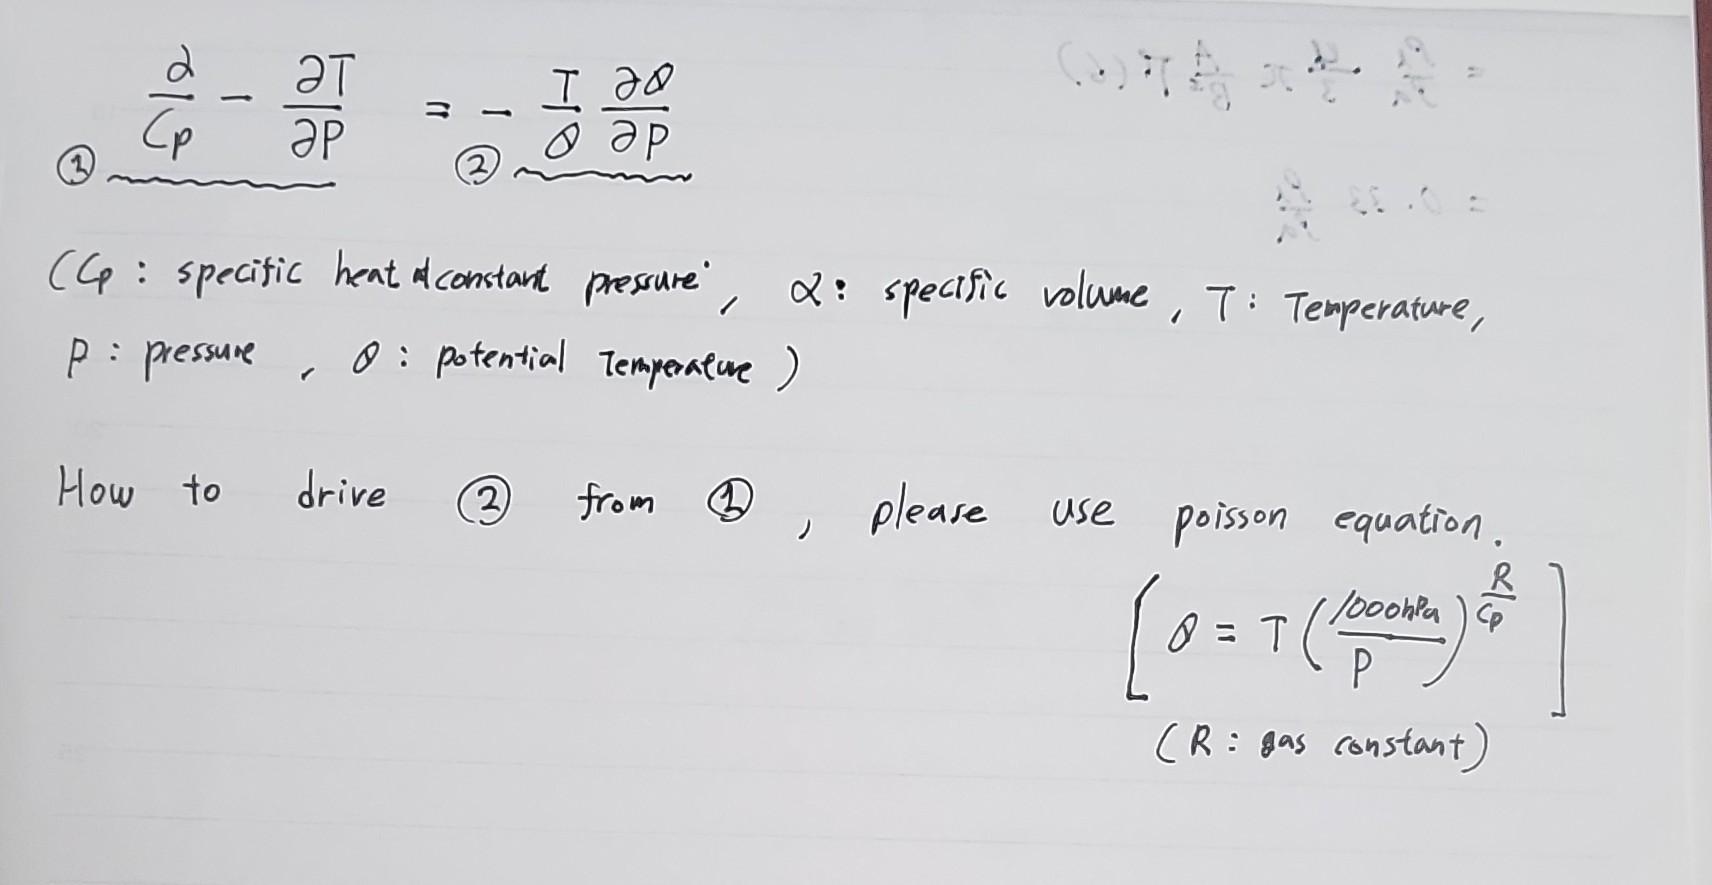 α/Cp - ∂T/∂P = - T/θ ∂θ/∂P
① ②
(Cp : specific heat at constant pressure, α : specific volume, T : Temperature,
P : pressure, θ : potential Temperature)
How to drive ② from ①, please use poisson equation.
[θ = T (1000hPa/P)^(R/Cp)]
(R : gas constant)